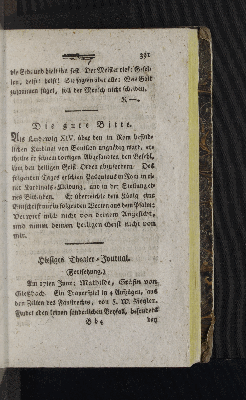 391
die Erd. und hielt ihn fest. Der Meister rief: Gesel-
len, helft! helft! Sie sagten aber alle: Was Gott
zusammen fügt, soll der Mensch nicht scheiden.
K—.
Die gute Bitte.
Als Ludewig XIV. über den in Rom befindli-
chen Kardinal von Bouillon ungnädig ward, er-
theilte er seinem dortigen Abgesandten den Befehl,
ihm den heiligen Geist Orden abzufordern. Des
folgenden Tages erschien in Rom in ei-
ner Kardinals-Kleidung, und in der Stellung ei-
nes Bittenden. Er überreichte dem König eine
Bittschrift mit folgenden Worten aus dem Psalm:
Verwirf mich nicht von deinem Angesicht,
und nimm deinen heiligen Geist nicht von
mir.
Hiesiges Theater-Journal.
(Fortsetzung.)
Am 17ten Juny: Mathilde, Gräfin von
Gießbach. Ein Trauerspiel in 4 Aufzügen, aus
den Zeiten des Faustrechts, von F. W. Ziegler.
Findet eben keinen sonderlichen Beyfall, besonders
Bb4 bey